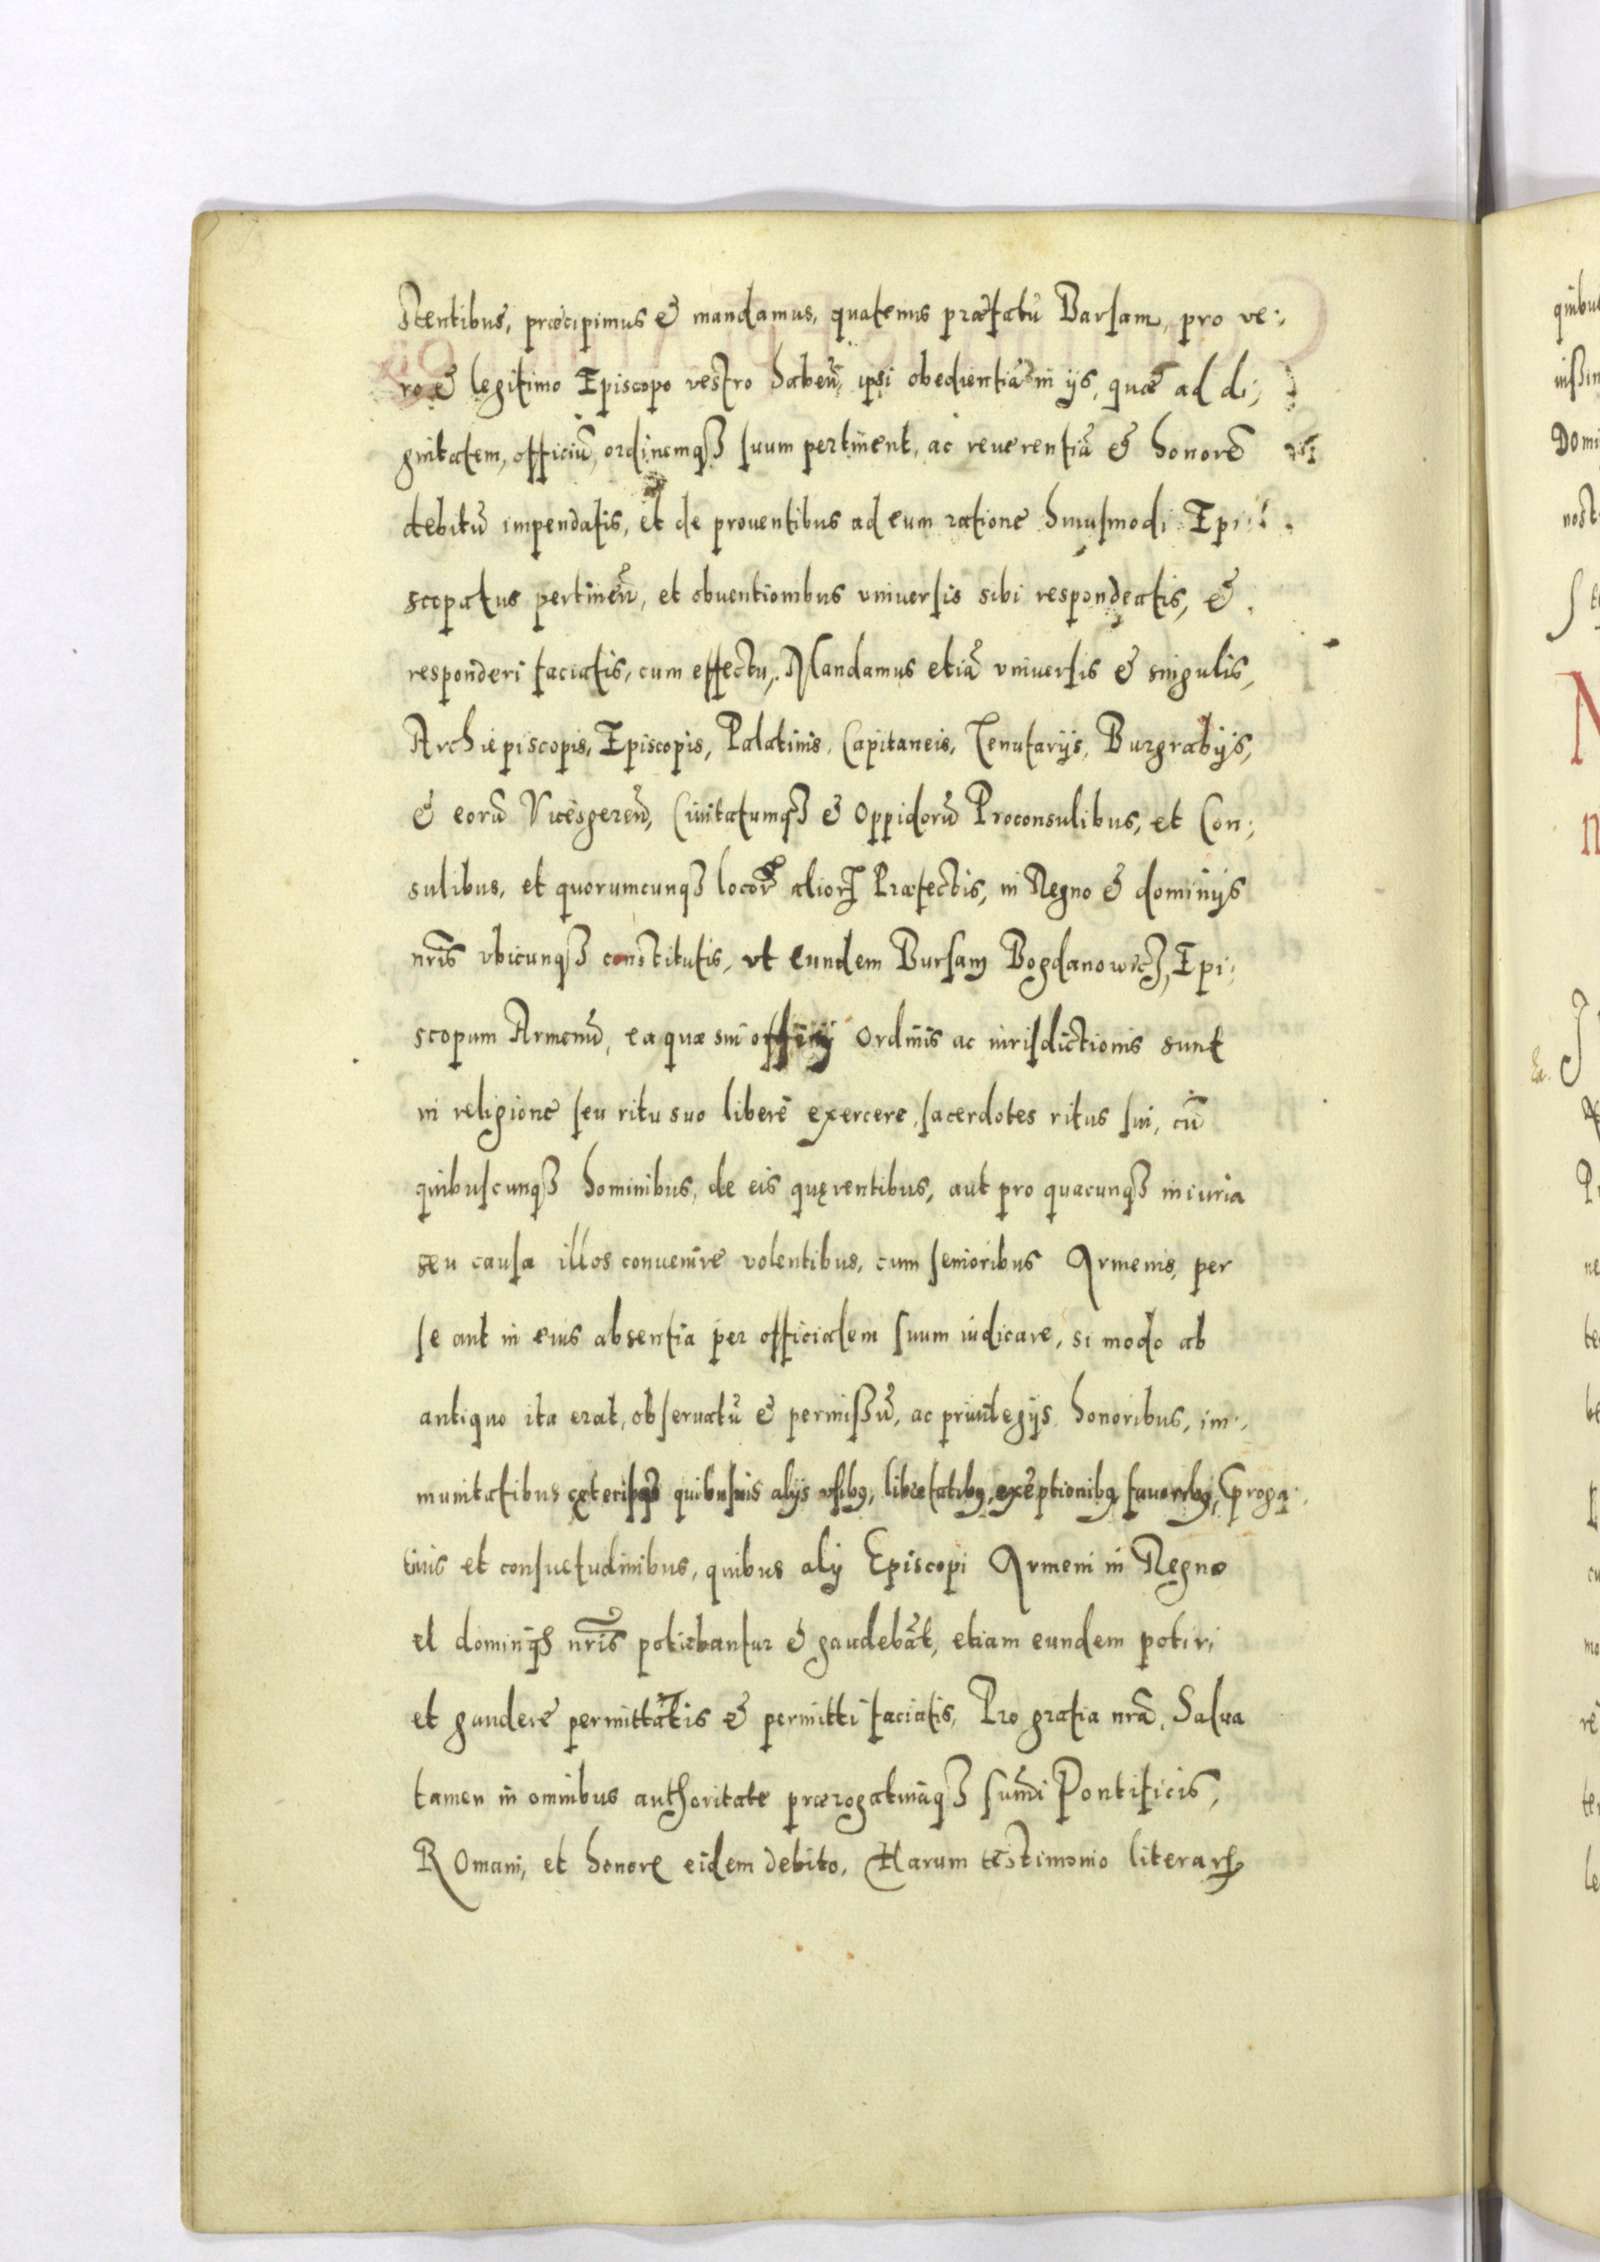 stentibus, præcipimus & mandamus, quatenus præfatũ Barsam, pro ve:,
ro & legitimo Episcopo vestro habeñ, ipsi obedientiã in ijs, quæ ad di;
gnitatem, officiũ, ordinemqȝ suum pertinent, ac reuerentiã & honorẽ
debitũ impendatis, et de prouentibus ad eum ratione huiusmodi Epi:
scopatus pertineñ, et obuentionibus vniuersis sibi respondeatis, &
responderi faciatis, cum effectu, Mandamus etiã vniuersis & singulis,
Archiepiscopis, Episcopis, Palatinis, Capitaneis, Tenutarijs, Burgrabijs,
& eorũ Vicesgereñ, Ciuitatumqȝ & Oppidorũ Proconsulibus, et Con;
sulibus, et quorumcunqȝ locorꝝ aliorꝝ Præfectis, in Regno & dominijs
nr̃is vbicunqȝ constitutis, vt eundem Barsam Bogdanowicz, Epi;
scopum Armenũ, ea quæ sui officij ordinis ac iurisdictionis sunt
in religione seu ritu suo liberè exercere, sacerdotes ritus sui, cũ
quibuscunqȝ hominibus, de eis quęrentibus, aut pro quacunqȝ iniuria
seu causa illos conuenire volentibus, cum senioribus Armenis, per
se aut in eius absentia per officialem suum iudicare, si modo ab
antiquo ita erat, obseruatũ & permissũ, ac priuilegijs honoribus, im:,
munitatibus cęterisqȝ quibusuis alijs vsibꝰ, libertatibꝰ, exẽptionibꝰ fauoribꝰ, proga:,
tiuis et consuetudinibus, quibus alij Episcopi Armeni in Regno
et dominijs nr̃is potiebantur & gaudebãt, etiam eundem potiri
et gaudere permittatis & permitti faciatis, Pro gratia nrã, Salua
tamen in omnibus authoritate prærogatiuaqȝ sum̃i Pontificis,
Romani, et honore eidem debito, Harum testimonio literarꝝ